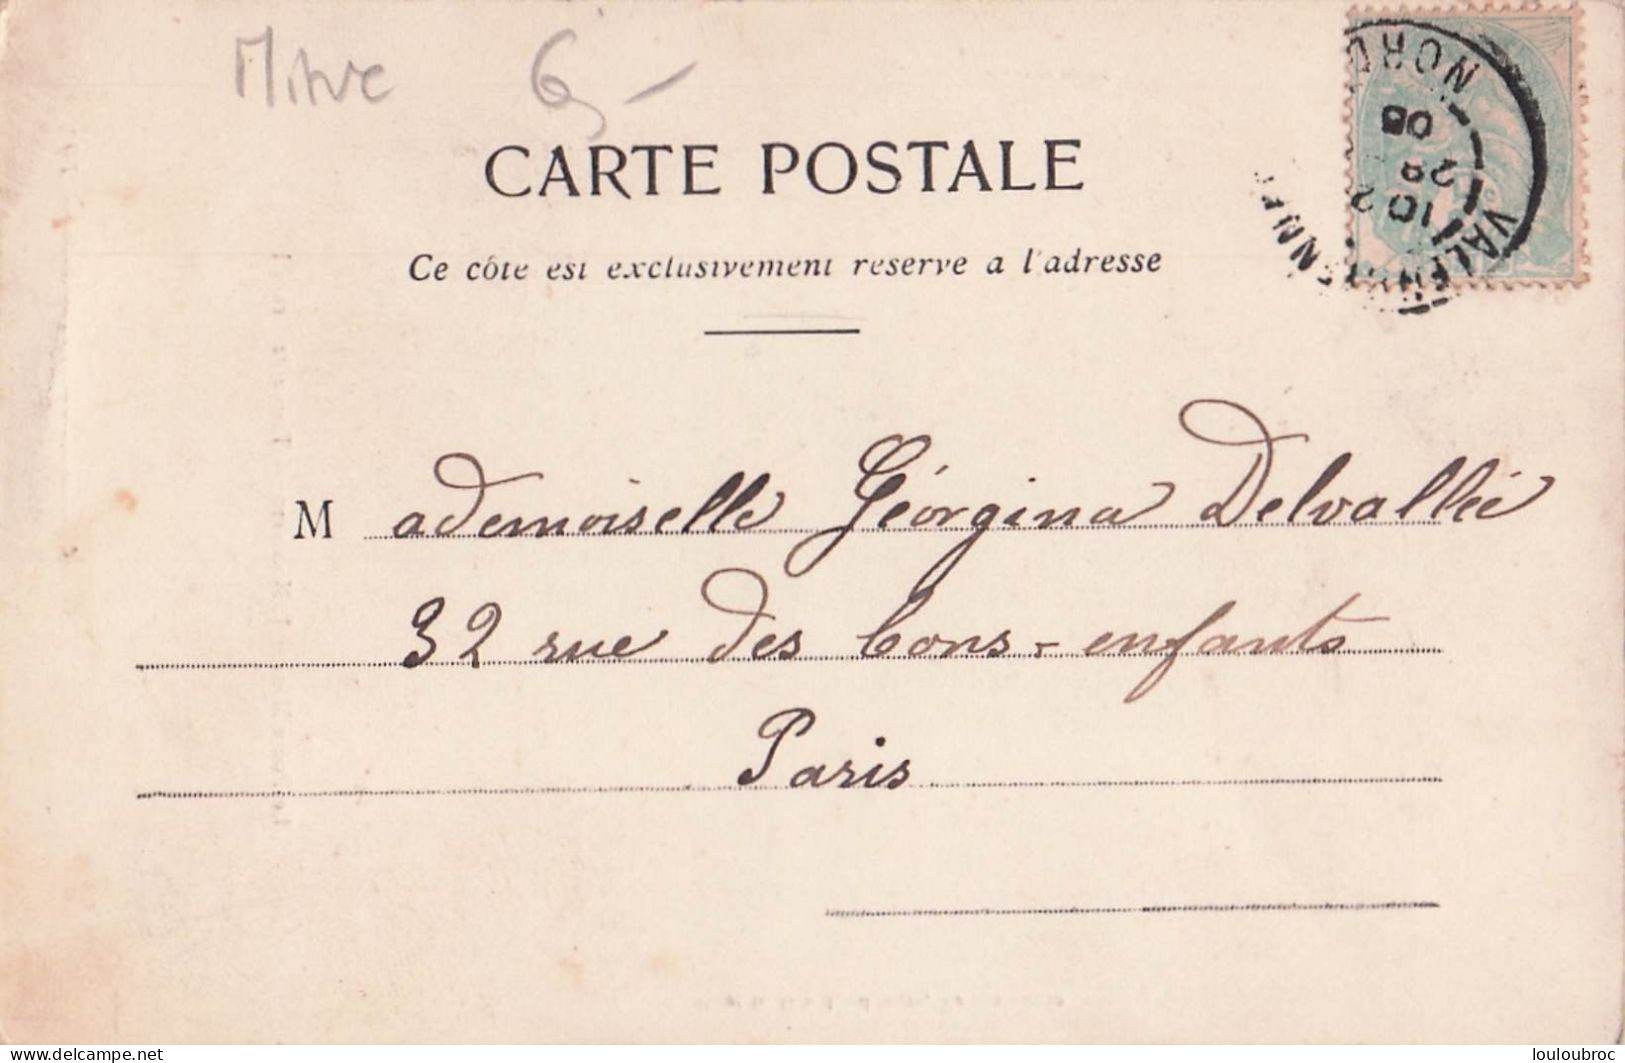 Mitre 6,-
CARTE POSTALE
Ce côte est exclusivement reserve a l'adresse
NORD
VALENCIENNES
10
29
05
Mademoiselle Géorgina Delvallée
32 rue des bons-enfants
Paris
© delcampe.net
louloubroc